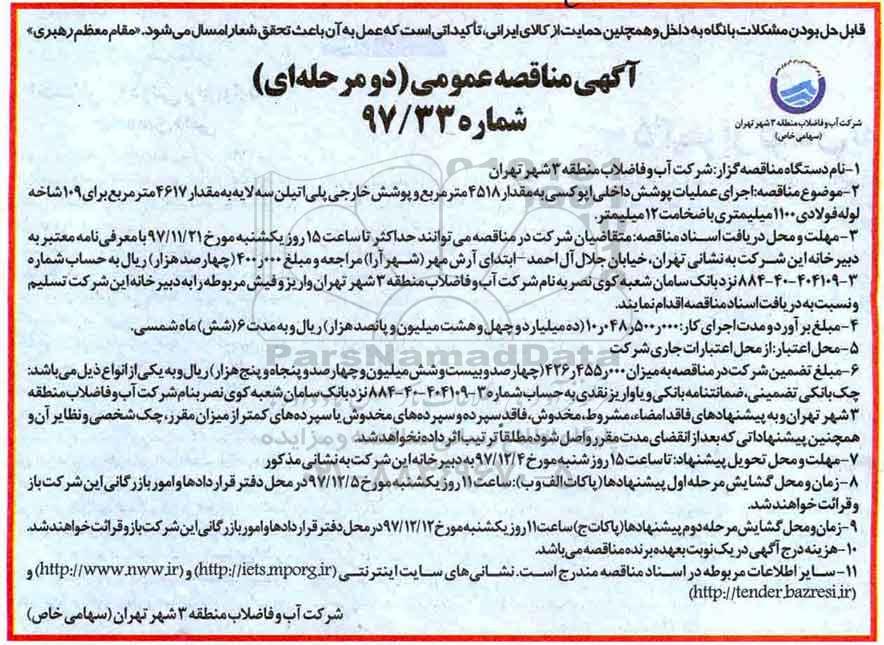 قابل حل بودن مشکلات با نگاه به داخل و همچنین حمایت از کالای ایرانی، تأکیداتی است که عمل به آن باعث تحقق شعار امسال می‌شود. «مقام معظم رهبری»
آگهی مناقصه عمومی (دو مرحله‌ای)
شماره ۹۷/۳۳
شرکت آب و فاضلاب منطقه ۳ شهر تهران
(سهامی خاص)
۱- نام دستگاه مناقصه گزار: شرکت آب و فاضلاب منطقه ۳ شهر تهران
۲- موضوع مناقصه: اجرای عملیات پوشش داخلی اپوکسی به مقدار ۴۵۱۸ متر مربع و پوشش خارجی پلی اتیلن سه لایه به مقدار ۴۶۱۷ متر مربع برای ۱۰۹ شاخه
لوله فولادی ۱۱۰۰ میلیمتری با ضخامت ۱۲ میلیمتر.
۳- مهلت و محل دریافت اسناد مناقصه: متقاضیان شرکت در مناقصه می توانند حداکثر تا ساعت ۱۵ روز یکشنبه مورخ ۹۷/۱۱/۲۱ با معرفی نامه معتبر به
دبیرخانه این شرکت به نشانی تهران، خیابان جلال آل احمد - ابتدای آرش مهر (شهر آرا) مراجعه و مبلغ ۴۰۰٫۰۰۰ (چهارصد هزار) ریال به حساب شماره
۳-۴۰۴۱۰۹-۴۰-۸۸۴ نزد بانک سامان شعبه کوی نصر به نام شرکت آب و فاضلاب منطقه ۳ شهر تهران واریز و فیش مربوطه را به دبیرخانه این شرکت تسلیم
و نسبت به دریافت اسناد مناقصه اقدام نمایند.
۴- مبلغ برآورد و مدت اجرای کار: ۱۰٫۰۴۸٫۵۰۰٫۰۰۰ (ده میلیارد و چهل و هشت میلیون و پانصد هزار) ریال و به مدت ۶ (شش) ماه شمسی.
۵- محل اعتبار: از محل اعتبارات جاری شرکت
ParsNamadData
۶- مبلغ تضمین شرکت در مناقصه به میزان ۴۲۶٫۴۵۵٫۰۰۰ (چهارصد و بیست و شش میلیون و چهارصد و پنجاه و پنج هزار) ریال و به یکی از انواع ذیل می باشد:
چک بانکی تضمینی، ضمانتنامه بانکی و یا واریز نقدی به حساب شماره ۳-۴۰۴۱۰۹-۴۰-۸۸۴ نزد بانک سامان شعبه کوی نصر بنام شرکت آب و فاضلاب منطقه
۳ شهر تهران و به پیشنهادهای فاقد امضاء، مشروط، مخدوش، فاقد سپرده و سپرده های مخدوش یا سپرده های کمتر از میزان مقرر، چک شخصی و نظایر آن و
همچنین پیشنهاداتی که بعد از انقضای مدت مقرر واصل شود مطلقا ترتیب اثر داده نخواهد شد.
۷- مهلت و محل تحویل پیشنهاد: تا ساعت ۱۵ روز شنبه مورخ ۹۷/۱۲/۴ به دبیرخانه این شرکت به نشانی مذکور
۸- زمان و محل گشایش مرحله اول پیشنهادها (پاکات الف و ب): ساعت ۱۱ روز یکشنبه مورخ ۹۷/۱۲/۵ در محل دفتر قراردادها و امور بازرگانی این شرکت باز
و قرائت خواهند شد.
۹- زمان و محل گشایش مرحله دوم پیشنهادها (پاکات ج) ساعت ۱۱ روز یکشنبه مورخ ۹۷/۱۲/۱۲ در محل دفتر قراردادها و امور بازرگانی این شرکت باز و قرائت خواهند شد.
۱۰- هزینه درج آگهی در یک نوبت بعهده برنده مناقصه می باشد.
۱۱- سایر اطلاعات مربوطه در اسناد مناقصه مندرج است. نشانی های سایت اینترنتی (http://iets.mporg.ir) و (http://www.nww.ir) و
(http://tender.bazresi.ir)
شرکت آب و فاضلاب منطقه ۳ شهر تهران (سهامی خاص)